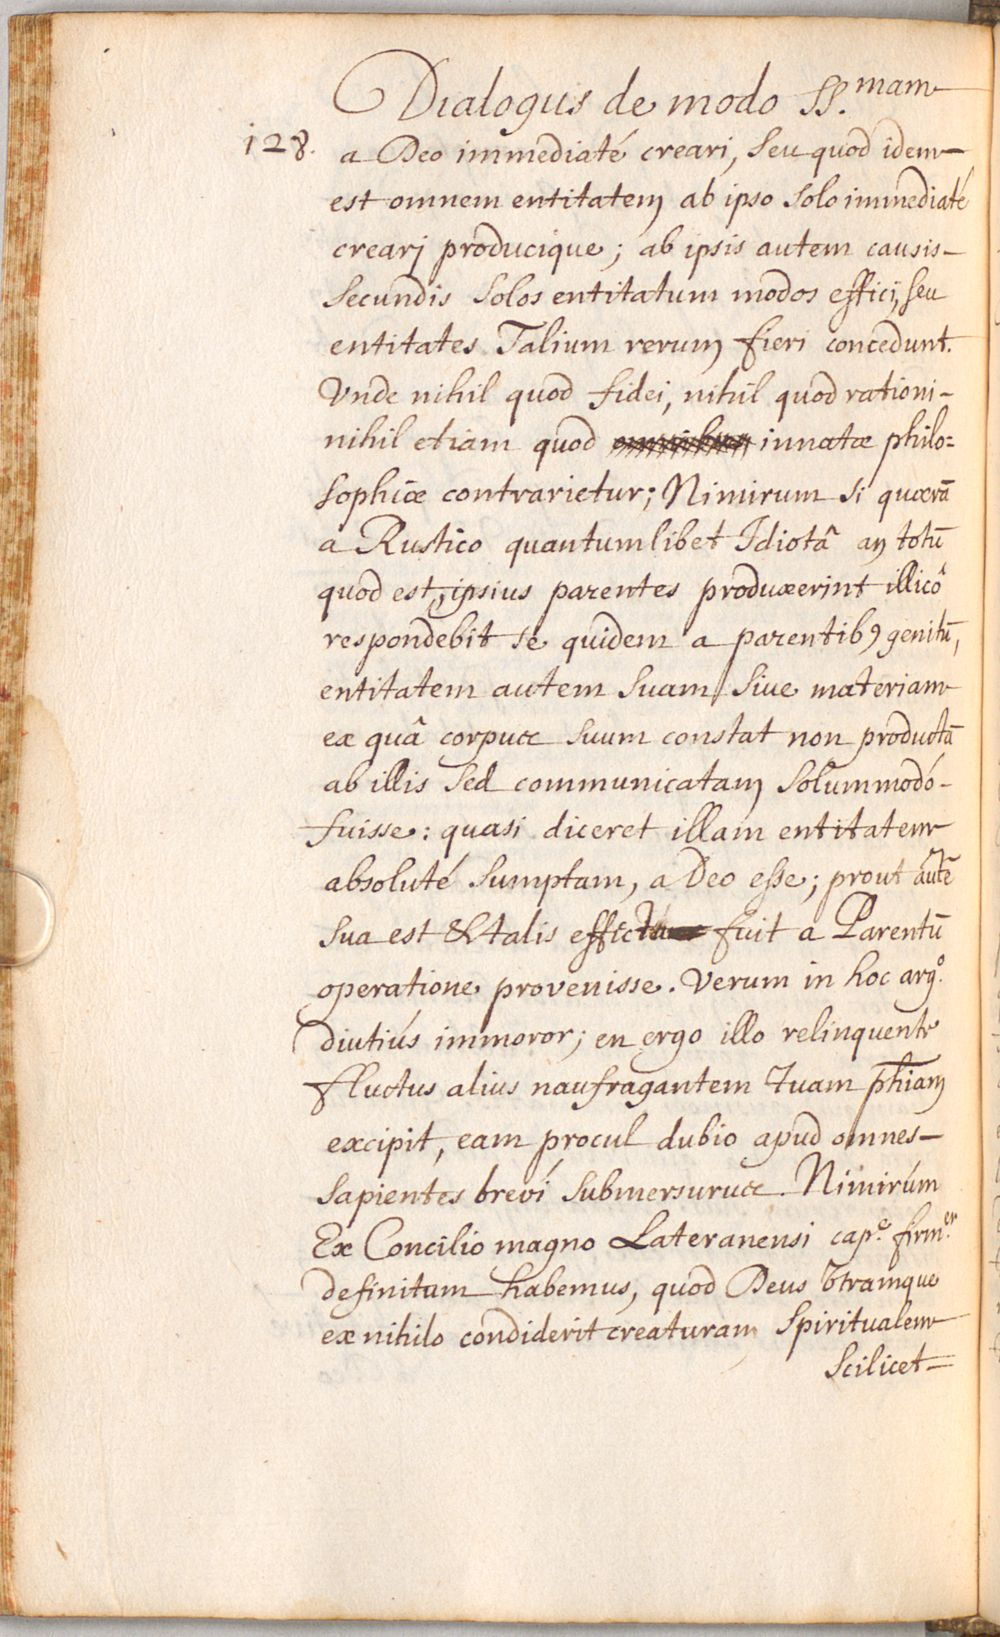 Dialogus de modo SS.mam
128. a Deo immediaté creari, seu quod idem
est omnem entitatem ab ipso solo immediaté
creari producique; ab ipsis autem causis
secundis solos entitatum modos effici, seu
entitates Talium rerum fieri concedunt.
Vnde nihil quod fidei, nihil quod rationi
nihil etiam quod innatæ philo=
sophiæ contrarietur; Nimirum si quærā
a Rustico quantumlibet Idiotâ an totū
quod est, ipsius parentes produxerint illicô
respondebit se quidem a parentibꝯ genitū,
entitatem autem suam sive materiam
ex quâ corpus suum constat non productā
ab illis sed communicatam solummodó
fuisse: quasi diceret illam entitatem
absoluté sumptam, a Deo esse; prout autē
sua est & talis effici fuit a Parentū
operatione provenisse. Verum in hoc argo.
diutiús immoror; en ergo illo relinquente
fluctus alius naufragantem tuam phīam
excipit, eam procul dubio apud omnes
sapientes breví submersurus. Nimirúm
Ex Concilio magno Lateranensi cap.e firm.er
definitum habemus, quod Deus Vtramque
ex nihilo condiderit creaturam spiritualem
scilicet